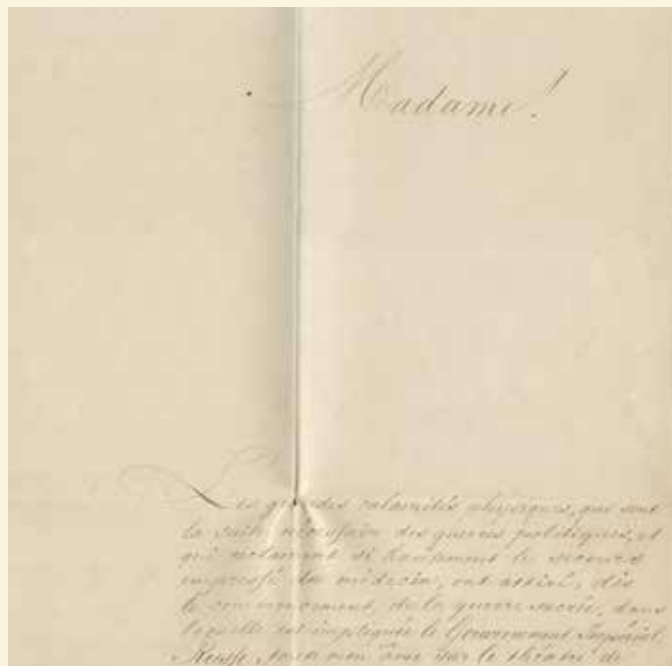 Madame!
Les grandes calamités physiques, que sont
la suite nécessaire des guerres politiques, et
qui réclament si hautement le secours
empressé du médecin, ont attiré, dès
le commencement de la guerre sacrée, dans
laquelle est impliquée le Gouvernement Impérial
Russe, mon âme sur le théâtre de